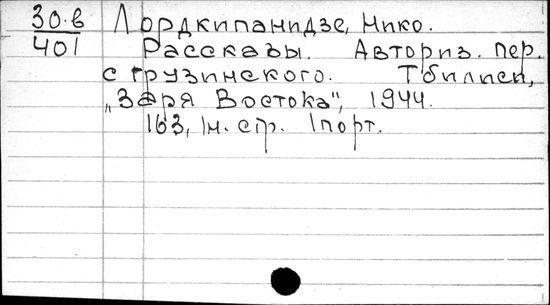 30.в Лордкипанидзе, Нико.
401 Рассказы. Авториз. пер.
с грузинского. Тбилиси,
„Заря Востока", 1944.
163, 1н. стр. 1порт.